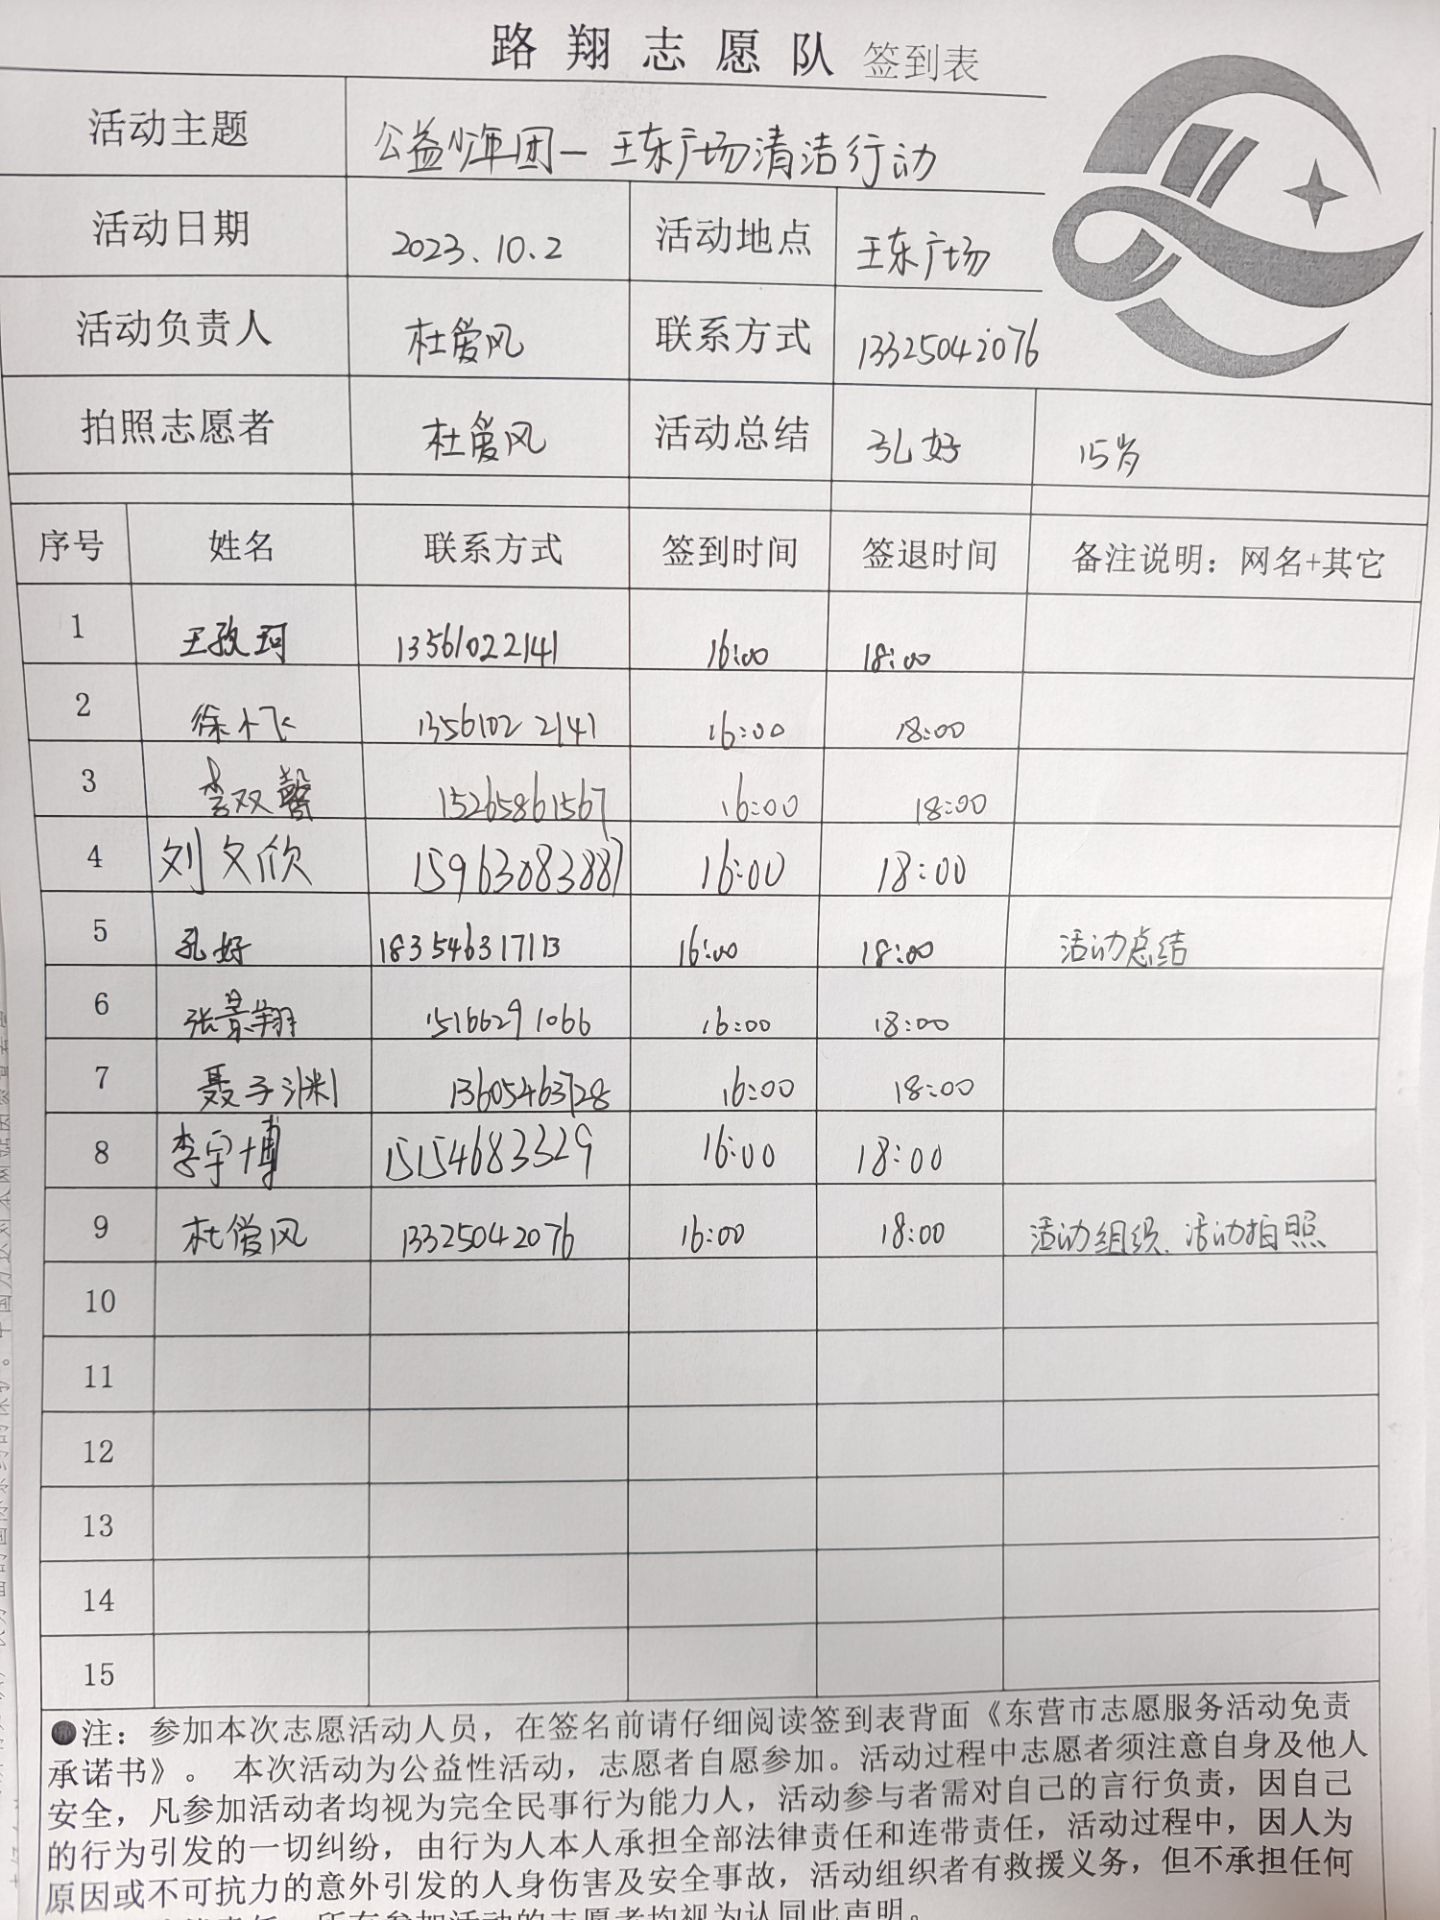 路翔志愿队 签到表
活动主题 公益少年团—王东广场清洁行动
活动日期 2023.10.2 活动地点 王东广场
活动负责人 杜爱风 联系方式 13325042076
拍照志愿者 杜爱风 活动总结 孔好 15岁
序号 姓名 联系方式 签到时间 签退时间 备注说明：网名+其它
1 王孜珂 13561022141 16:00 18:00
2 徐小飞 13561022141 16:00 18:00
3 李双馨 15265861567 16:00 18:00
4 刘文欣 15963083887 16:00 18:00
5 孔好 183546317113 16:00 18:00 活动总结
6 张景翔 15166291066 16:00 18:00
7 聂子渊 13605463728 16:00 18:00
8 李宇博 15154683329 16:00 18:00
9 杜爱风 13325042076 16:00 18:00 活动组织、活动拍照
10
11
12
13
14
15
●注：参加本次志愿活动人员，在签名前请仔细阅读签到表背面《东营市志愿服务活动免责
承诺书》。 本次活动为公益性活动，志愿者自愿参加。活动过程中志愿者须注意自身及他人
安全，凡参加活动者均视为完全民事行为能力人，活动参与者需对自己的言行负责，因自己
的行为引发的一切纠纷，由行为人本人承担全部法律责任和连带责任，活动过程中，因人为
原因或不可抗力的意外引发的人身伤害及安全事故，活动组织者有救援义务，但不承担任何
所有参加活动的志愿者均视为认同此声明。